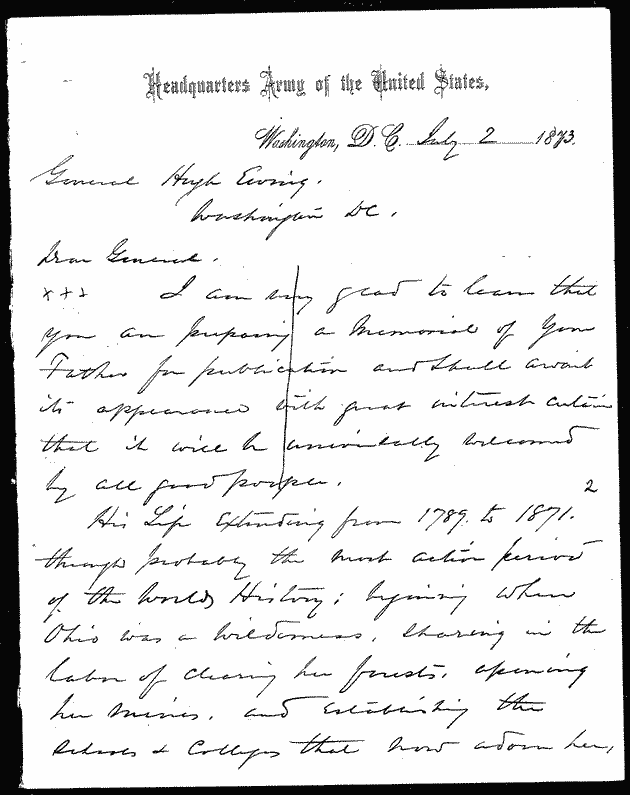 Headquarters Army of the United States,
Washington, D.C. July 2 1873.
General Hugh Ewing.
Washington DC.
Dear General.
x x x I am very glad to learn that
you are preparing a Memorial of Your
Father for publication and shall await
its appearance with great interest certain
that it will be universally welcomed
by all good people.
2
His Life Extending from 1789. to 1871.
through probably the most active period
of the Worlds History; beginning when
Ohio was a wilderness, sharing in the
labor of clearing her forests, opening
her mines, and establishing the
Schools & Colleges that now adorn her,